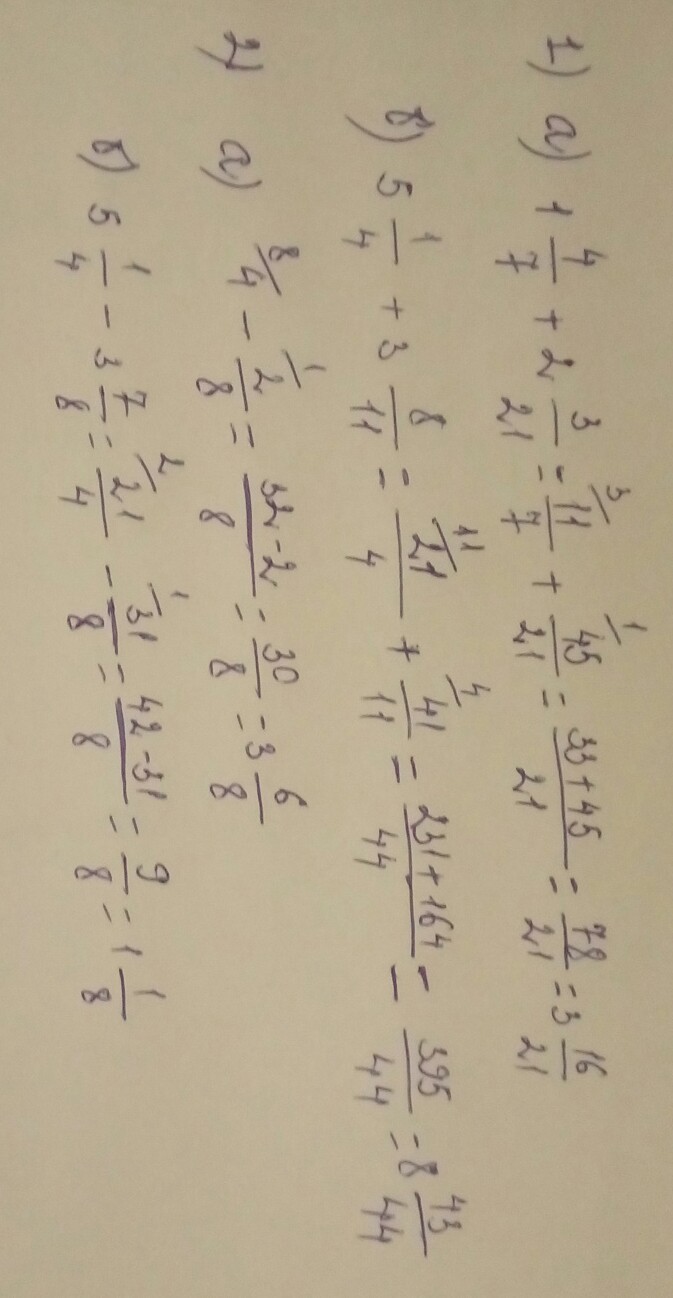 1) а) 1 4/7 + 2 3/21 = 11/7 (3/) + 45/21 (1/) = (33+45)/21 = 78/21 = 3 16/21
в) 5 1/4 + 3 8/11 = 21/4 (11/) + 41/11 (4/) = (231+164)/44 = 395/44 = 8 43/44
2) а) 8/4 - 2/8 (1/) = (32-2)/8 = 30/8 = 3 6/8
б) 5 1/4 - 3 7/8 = 21/4 (2/) - 31/8 (1/) = (42-31)/8 = 9/8 = 1 1/8